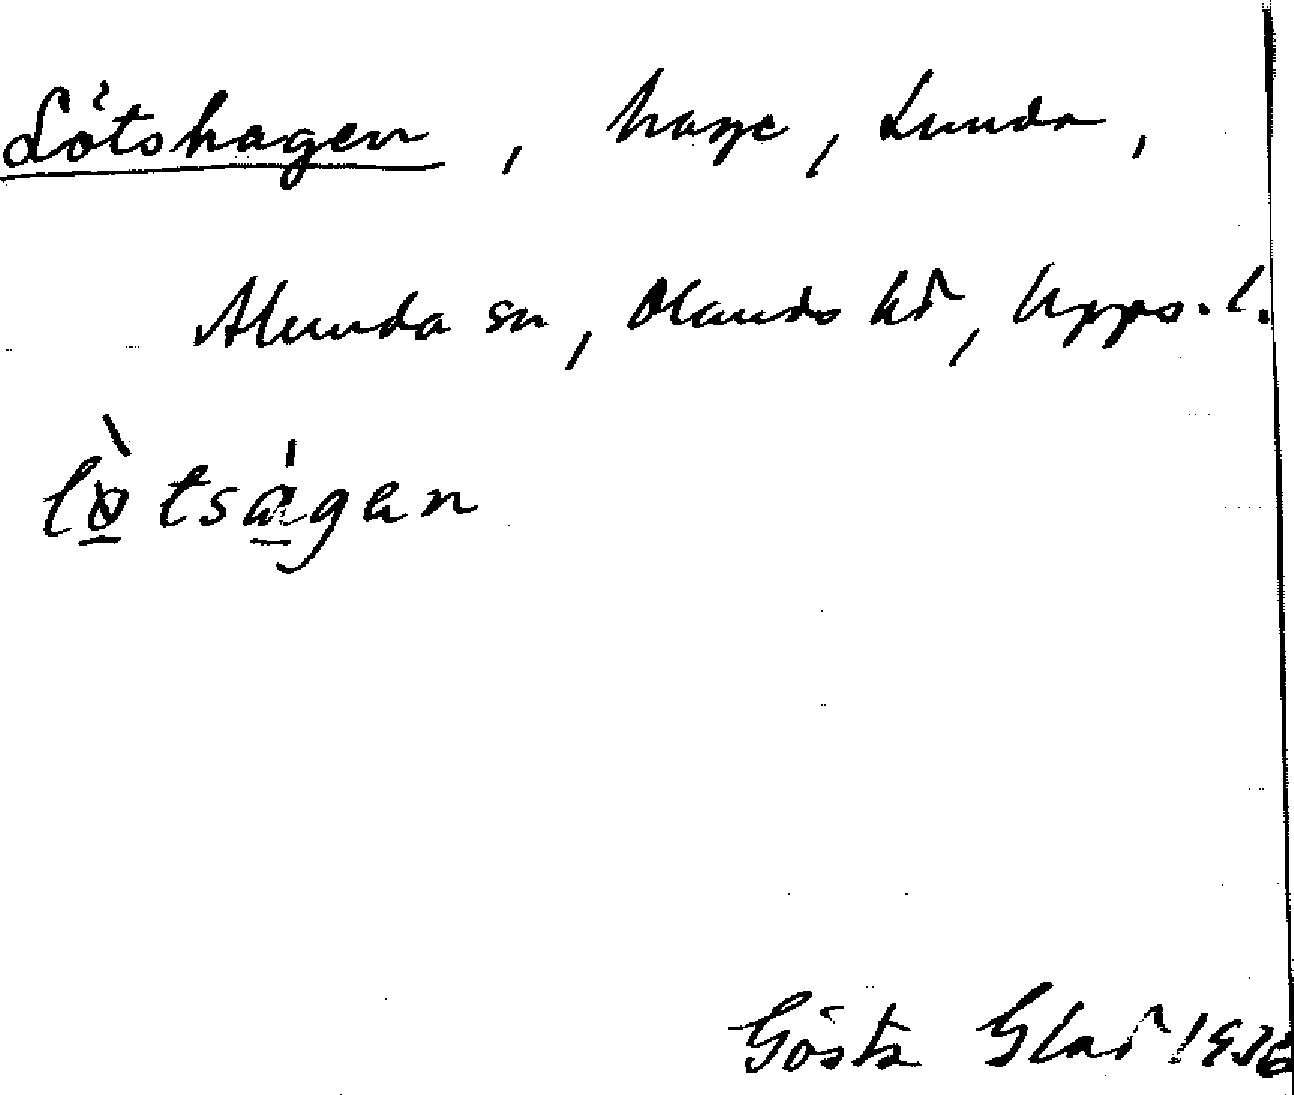 Lötshagen, hage, Lunda,
Alunda sn, Olands hd, Upps. l.
lø̀tsa̍gen
Gösta Glad 1936